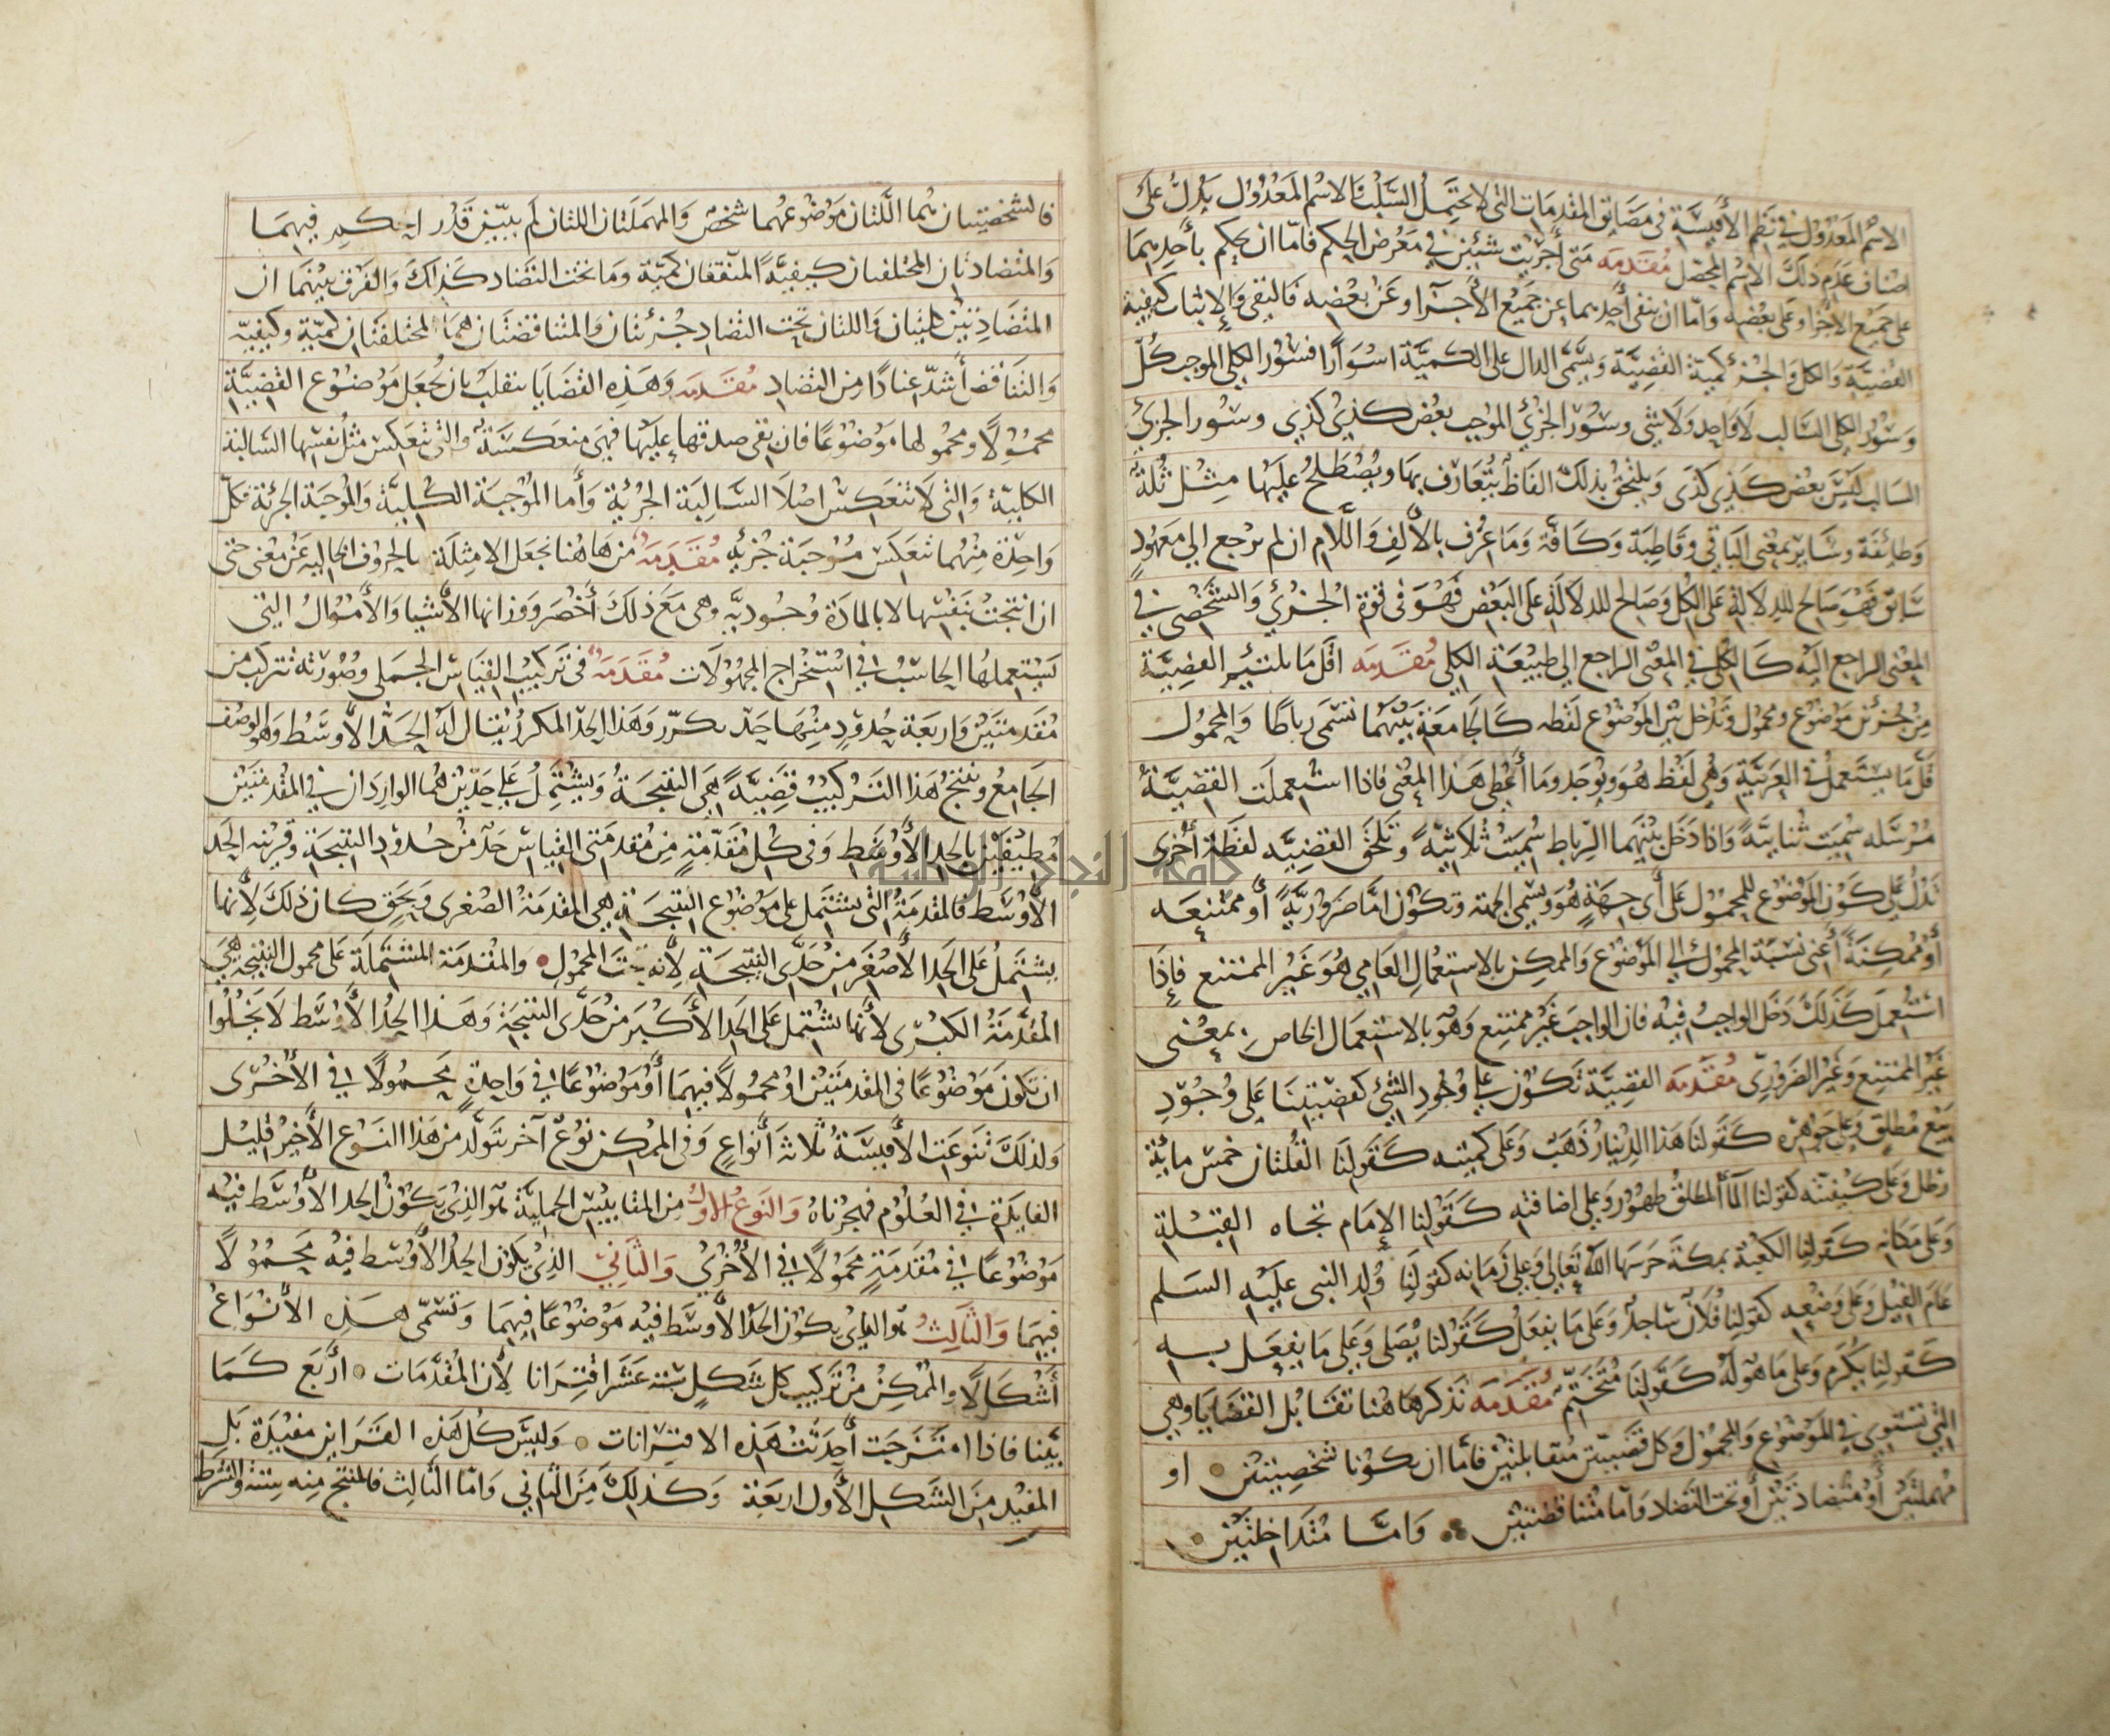 الاسم المعدول في نظم الأقيسة في مضايق المقدمات التي لا تحتمل السلب فالاسم المعدول يدل على
اصناف عدم ذلك الاسم المحصل مقدمه متى أجريت شيئين في معرض الحكم فامّا ان يحكم بأحدهما
على جميع الأجزا وعلى بعضه وامّا ان ينفى أحدهما عن جميع الأجزآ او عن بعضه فالنفي والإثبات كيفية
القضيّة والكل والجزء كمية القضيّة ويسمّى الدال على الكميّة اسوارًا فسور الكلي الموجب كلّ
وسور الكلي السالب لا واحد ولا شي وسور الجزئي الموجب بعض كذي كذي وسور الجزئ
السالب ليس بعض كذي كذى ويلتحق بذلك الفاظ يتعارف بها ويصطلح عليها مثل ثلة
وطائفة وساير بمعنى الباقي وقاطبة وكافّة وما عرف بالألف واللّام ان لم يرجع الي معهود
سابق فهو صالح للدلالة على الكل وصالح للدلالة على البعض فهو في قوة الجزئي والشخصي في
المعنى الراجع اليه كالكلي في المعنى الراجع الي طبيعة الكلي مقدمه اقل ما يلتئم القضيّة
من جزئين موضوع ومحمول وتدخل بين الموضوع لفظه كالجامعة بينهما تسمى رباطا والمحمول
قلّ ما يستعمل في العربيّة وهي لفظ هو ويوجد وما أعطى هذا المعنى فاذا استعملت القضيّة
مرسله سميت ثنايّةً واذا دخل بينهما الرباط سميت ثلاثيّةً وتلحق القضيّه لفظة أخرى
تدل على كون الموضوع للمحمول على أي جهة هو ويسمي الجهة وتكون امّا ضروريّةً أو ممتنعه
أو ممكنةً أعني نسبة المحمول الي الموضوع والممكن بالاستعمال العامي هو غير الممتنع فإذا
استعمل كذلك دخل الواجب فيه فان الواجب غير ممتنع وهو بالاستعمال الخاص بمعنى
غير الممتنع وغير الضروري مقدمه القضيّة تكون على وجود الشئ كقضيتنا على وجود
بيع مطلق وعلى جوهره كقولنا هذا الدينار ذهب وعلى كميته كقولنا القلتان خمس مائة
رطل وعلى كيفيته كقولنا المآ المطلق طهور وعلى اضافته كقولنا الإمام تجاه القبلة
وعلى مكانه كقولنا الكعبة بمكة حرسها الله تعالى وعلى زمانه كقولنا ولد النبى عليه السلم
عام الفيل وعلى وضعه كقولنا فلان ساجد وعلى ما يفعل كقولنا يصلى وعلى ما يفعل به
كقولنا يكرم وعلى ما هو له كقولنا متختم مقدمه نذكر هاهنا تقابل القضايا وهي
التي تستوي في الموضوع والمحمول وكل قضيتين متقابلتين فامّا ان يكونا شخصيتين او
مهملتين أو متضادتين أو تحت التضاد وامّا متناقضتين وامّا متداخلتين
فالشخصيتان هما اللّتان موضوعهما شخص والمهملتان اللتان لم يبيّن قدر الحكم فيهما
والمتضادتان المختلفتان كيفيّةً المتّفقتان كميّة وما تحت التضاد كذلك والفرق بينهما ان
المتضادتين كليتان واللتان تحت التضاد جزئتان والمتناقضتان هما المختلفتان كميّة وكيفيّه
والتناقض أشدّ عنادًا من التضاد مقدمه وهذه القضايا تنقلب بان يجعل موضوع القضيّة
محمولًا ومحمولها موضوعًا فان بقى صدقها عليها فهي منعكسة والتى تنعكس مثل نفسها السالبة
الكليّة والتى لا تنعكس اصلا السالبة الجزئية وأما الموجبة الكليّة والموجبة الجزئة فكلّ
واحدة منهما تنعكس موجبة جزئيه مقدمه من هاهنا نجعل الامثلة بالحروف الخاليه عن معنى حتى
ان انتجت بنفسها لا بالمادة وجوديّه وهى مع ذلك أخصر ووزانها الأشيا والأموال التي
يستعملها الحاسب في استخراج المجهولات مقدمه في تركيب القياس الحملي وصورته تتركب من
مقدمتين واربعة حدود منها حد يكرّر وهذا الحد المكرر يقال له الحدّ الأوسط وهو الوصف
الجامع وينتج هذا التركيب قضيّةً هي النتيجة ويشتمل على حدّين هما الواردان في المقدمتين
مطيفين بالحد الأوسط وفى كل مقدّمةٍ من مقدمتى القياس حدّ من حدود النتيجة وقرينه الحد
الأوسط فالمقدمة التى يشتمل على موضوع النتيجة هي المقدمة الصغرى وبحق كان ذلك لأنها
يشتمل على الحد الأصغر من حدّى النتيجة لأنه تحت المحمول والمقدمة المشتملة على محمول النتيجه هي
المقدّمة الكبرى لأنها يشتمل على الحد الأكبر من حدّى النتيجة وهذا الحد الأوسط لا يخلوا
ان تكون موضوعًا في المقدمتين او محمولًا فيهما أو موضوعًا في واحدة محمولًا في الأخرى
ولذلك تنوعت الأقيسة ثلاثة أنواع وفى الممكن نوع آخر يتولّد من هذا النوع الأخير قليل
الفايدة في العلوم فهجرناه والنوع الاول من المقاييس الحمليّة هو الذي يكون الحد الأوسط فيه
موضوعًا في مقدمة محمولًا في الأخري والثاني الذي يكون الحد الأوسط فيه محمولًا
فيهما والثالث هو الذي يكون الحد الأوسط فيه موضوعًا فيهما وتسمّى هذه الأنواع
أشكالًا والممكن من تركيب كل شكل ستة عشر اقترانا لأن المقدّمات أربع كما
بيّنا فاذا امتزجت أحدثت هذه الاقترانات وليس كل هذه القراين مفيدة بل
المفيد من الشكل الأول اربعة وكذلك من الثاني وامّا الثالث فالمنتج منه ستة والشرط